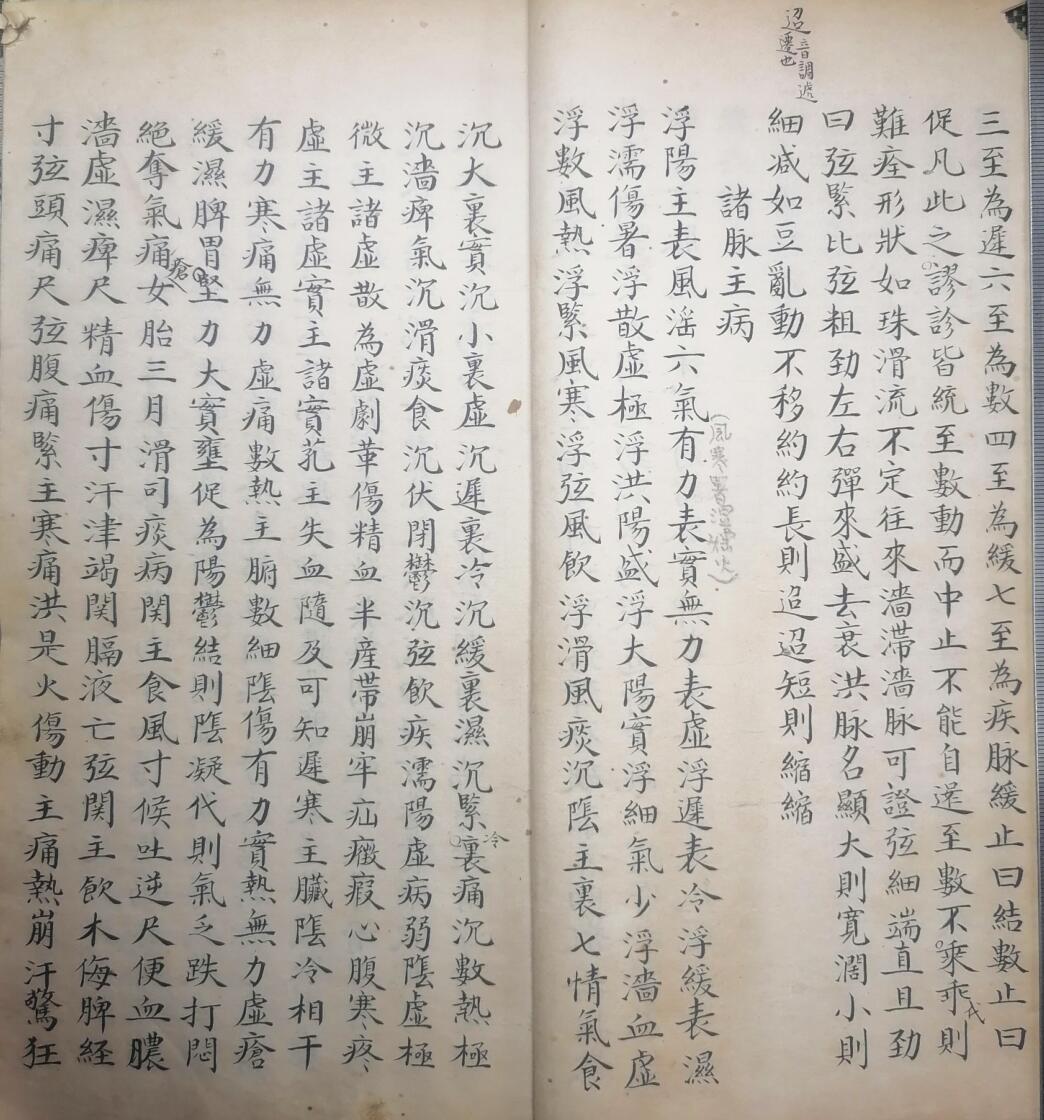 迢音調遞
遷也
三至為遲六至為數四至為緩七至為疾脉緩止曰結數止曰
促凡此之謬診皆統至數動而中止不能自還至數不乘乖則
代
難痊形狀如珠滑流不定往來濇滯濇脉可證弦細端直且勁
曰弦緊比弦粗勁左右彈來盛去衰洪脉名顯大則寬濶小則
細減如豆亂動不移約約長則迢迢短則縮縮
諸脉主病
浮陽主表風淫六氣有力表實無力表虛浮遲表冷浮緩表濕
(風寒暑濕燥火)
浮濡傷暑浮散虛極浮洪陽盛浮大陽實浮細氣少浮濇血虛
浮數風熱浮緊風寒浮弦風飲浮滑風痰沉陰主裏七情氣食
沉大裏實沉小裏虛沉遲裏冷沉緩裏濕沉緊裏痛沉數熱極
冷
沉濇痺氣沉滑痰食沉伏閉鬱沉弦飲疾濡陽虛病弱陰虛極
微主諸虛散為虛劇革傷精血半産帶崩牢疝癥瘕心腹寒疼
虛主諸虛實主諸實芤主失血隨及可知遲寒主臟陰冷相干
有力寒痛無力虛痛數熱主腑數細陰傷有力實熱無力虛瘡
緩濕脾胃堅力大實壅促為陽鬱結則陰凝代則氣乏跌打悶
絕奪氣痛女胎三月滑司痰病関主食風寸候吐逆尺便血膿
瘡
濇虛濕痺尺精血傷寸汗津竭関膈液亡弦関主飲木侮脾経
寸弦頭痛尺弦腹痛緊主寒痛洪是火傷動主痛熱崩汗驚狂